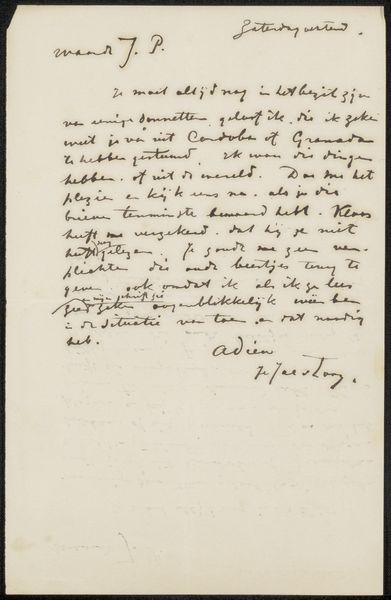 Zaterdagochtend.
waarde J. P.
Je moet altijd nog in het bezit zijn
van eenige sonnetten, geloof ik, die ik zeker
weet je van uit Cordoba of Granada
te hebben gestuurd. Ik wou die dingen
hebben. of uit de wereld. Doe me het
plezier en kijk eens na. als je die
brieven tenminste bewaard hebt. Kloos
heeft me verzekerd. dat hij ze niet
heeft gelezen. Je zoude me zeer ver-
plichten die oude beestjes terug te
geven. ook omdat ik als ik ze lees
en mijn schrift zie
oogenblikkelijk weer ben
in de situatie van toen en dat noodig
heb.
adieu
Je Jac v Looy.